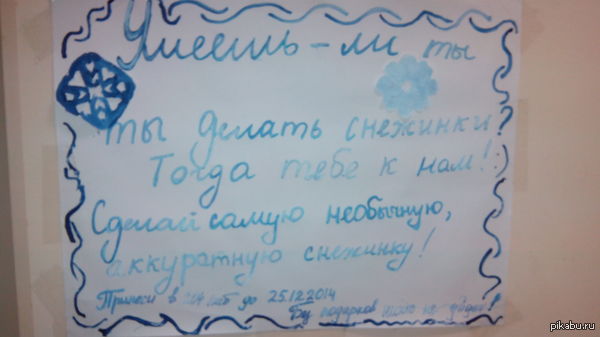 Умеешь-ли ты
ты делать снежинки?
Тогда тебе к нам! :)
Сделай самую необычную,
аккуратную снежинку!
Принеси в до 25.12.2014
Без подарков никто не уйдёт!
pikabu.ru